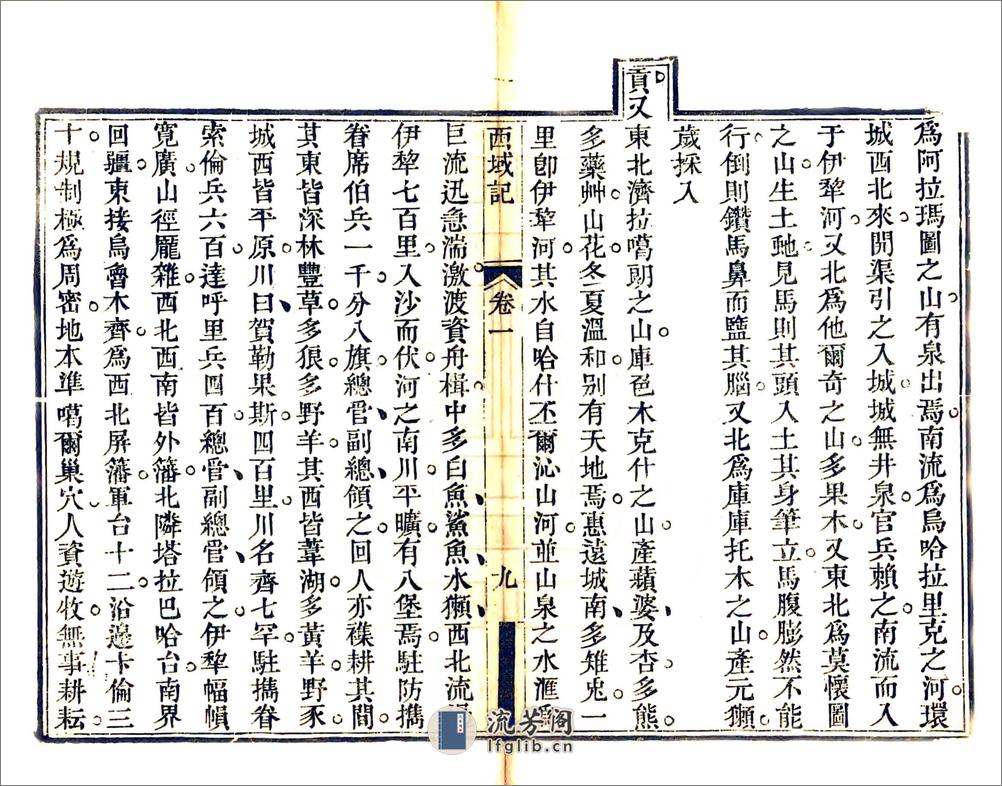 為阿拉瑪圖之山有泉出焉南流為烏哈拉里克之河環
城西北來開渠引之入城城無井泉官兵賴之南流而入
于伊犂河又北為他爾奇之山多果木又東北為莫懷圖
之山生土虵見馬則其頭入土其身筆立馬腹膨然不能
行倒則鑽馬鼻而盬其腦又北為庫庫托木之山產元獺
歲採入
貢又東北濟拉噶朗之山庫色木克什之山產蘋婆及杏多熊
多藥艸山花冬夏溫和別有天地焉惠遠城南多雉兎一
里卽伊犂河其水自哈什丕爾沁山河並山泉之水滙
西域記
卷一
九
巨流迅急湍激渡資舟楫中多白魚鯊魚水獺西北流
伊犂七百里入沙而伏河之南川平曠有八堡焉駐防攜
眷席伯兵一千分八旗總官副總領之回人亦襍耕其間
其東皆深林豐草多狼多野羊其西皆葦湖多黃羊野豕
城西皆平原川曰賀勒果斯四百里川名齊七罕駐攜眷
索倫兵六百達呼里兵四百總官副總官領之伊犂幅幀
寬廣山徑龎雜西北西南皆外藩北隣塔拉巴哈台南界
回疆東接烏魯木齊為西北屏藩軍台十二沿邊卡倫三
十規制極為周密地本準噶爾巢穴人資遊牧無事耕耘
流芳阁
lfglib.cn